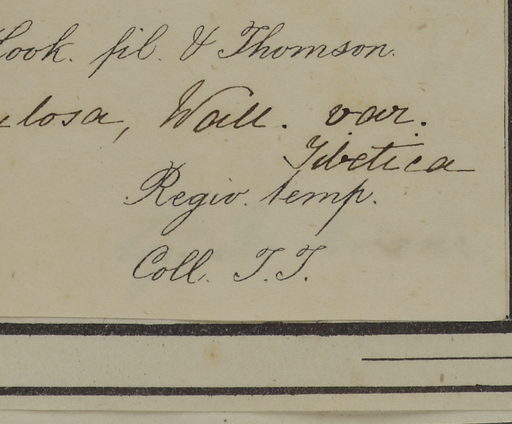 Hook. fil. & Thomson.
losa, Wall. var.
Tibetica
Regio. temp.
Coll. T. T.